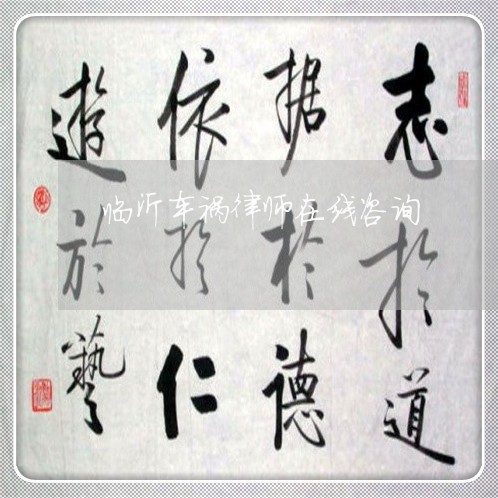 志於道
据於德
依於仁
遊於藝
临沂车祸律师在线咨询